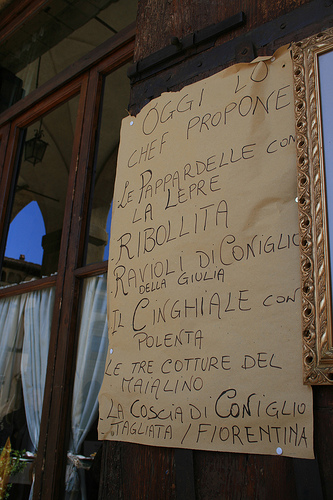 OGGI LO
CHEF PROPONE
LE PAPPARDELLE CON
LA LEPRE
RIBOLLITA
RAVIOLI DI CONIGLIO
DELLA GIULIA
IL CINGHIALE CON
POLENTA
LE TRE COTTURE DEL
MAIALINO
LA COSCIA DI CONIGLIO
TAGLIATA / FIORENTINA